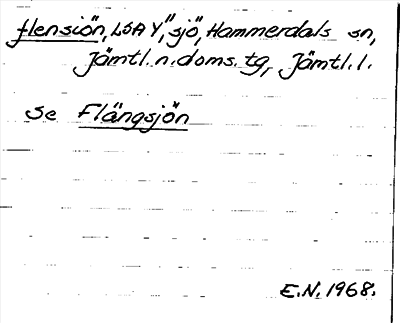 flensiön, LSA Y, "sjö, Hammerdals sn,
Jämtl.n.doms.tg, Jämtl.l.
Se Flängsjön
E.N. 1968.